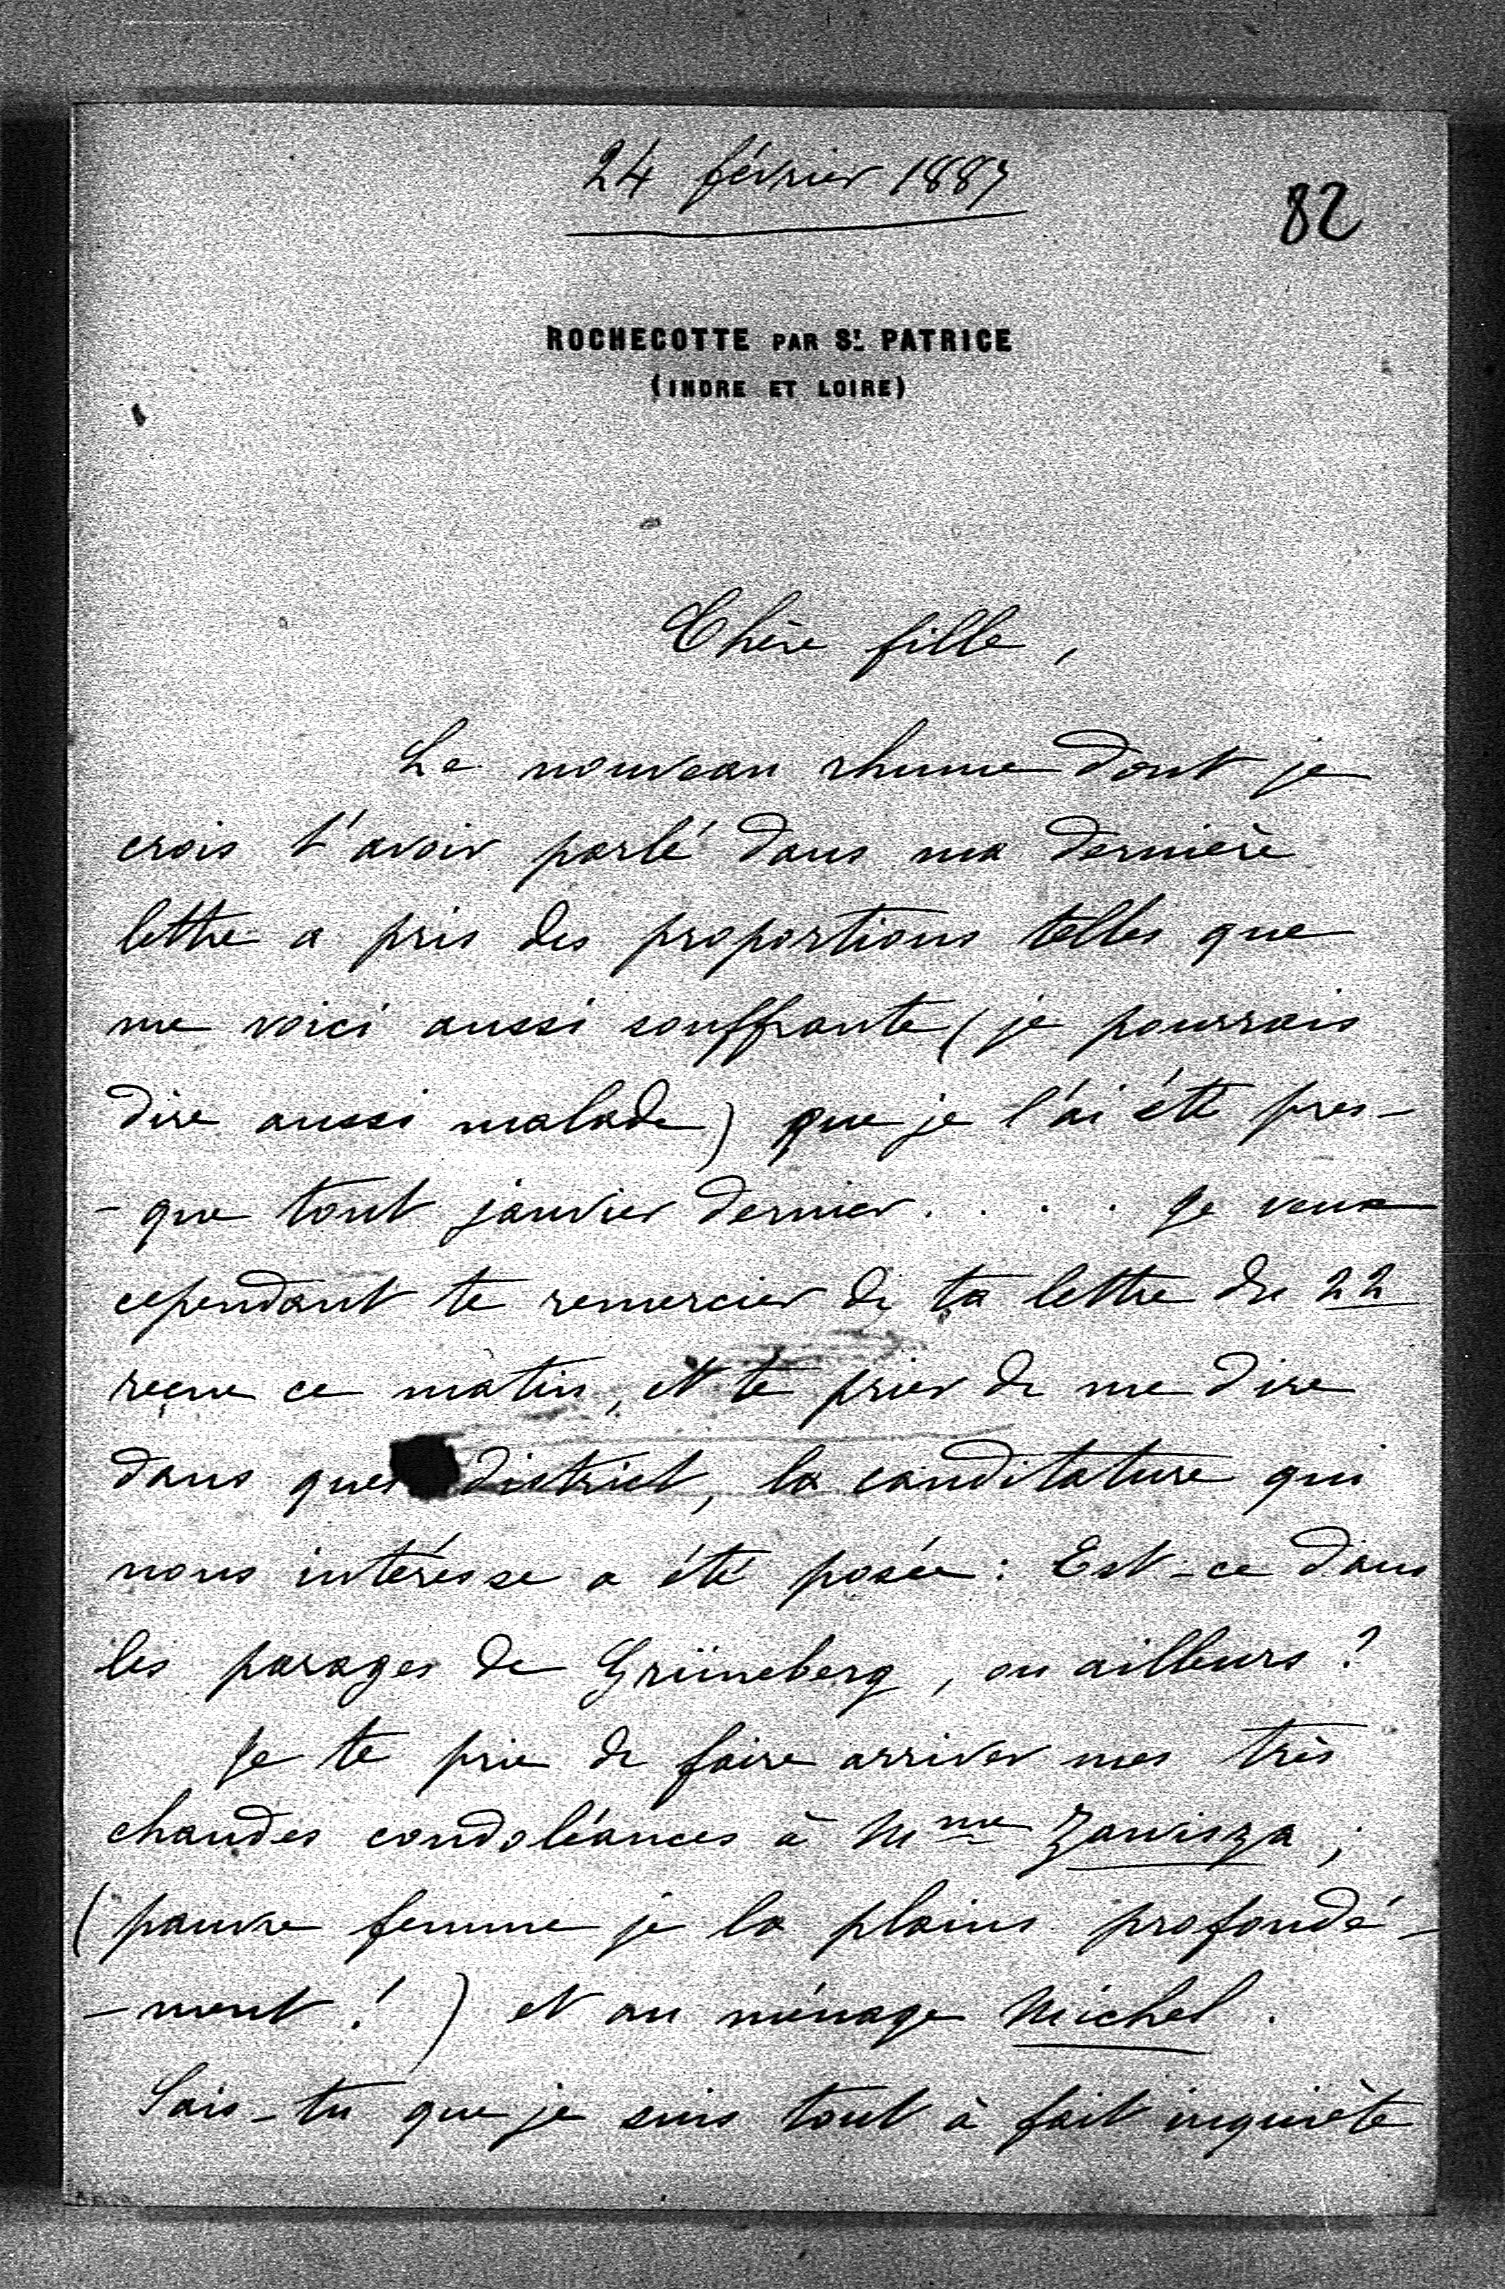 24 février 1887
82
ROCHECOTTE PAR St. PATRICE
(INDRE ET LOIRE)
Chère fille,
Le nouveau rhume dont je
crois t'avoir parlé dans ma dernière
lettre a pris des proportions telles que
me voici aussi souffrante (je pourrais
dire aussi malade) que je l'ai été pres-
-que tout janvier dernier.... Je veux
cependant te remercier de ta lettre du 22
reçue ce matin, et te prier de me dire
dans quel district, la canditature qui
nous intéresse a été posée: Est-ce dans
les parages de Grüneberg, ou ailleurs?
Je te prie de faire arriver mes très
chaudes condoléances à Mme Zawisza;
(pauvre femme je la plains profondé-
-ment!) et au ménage Michel.
Sais-tu que je suis tout à fait inquiète